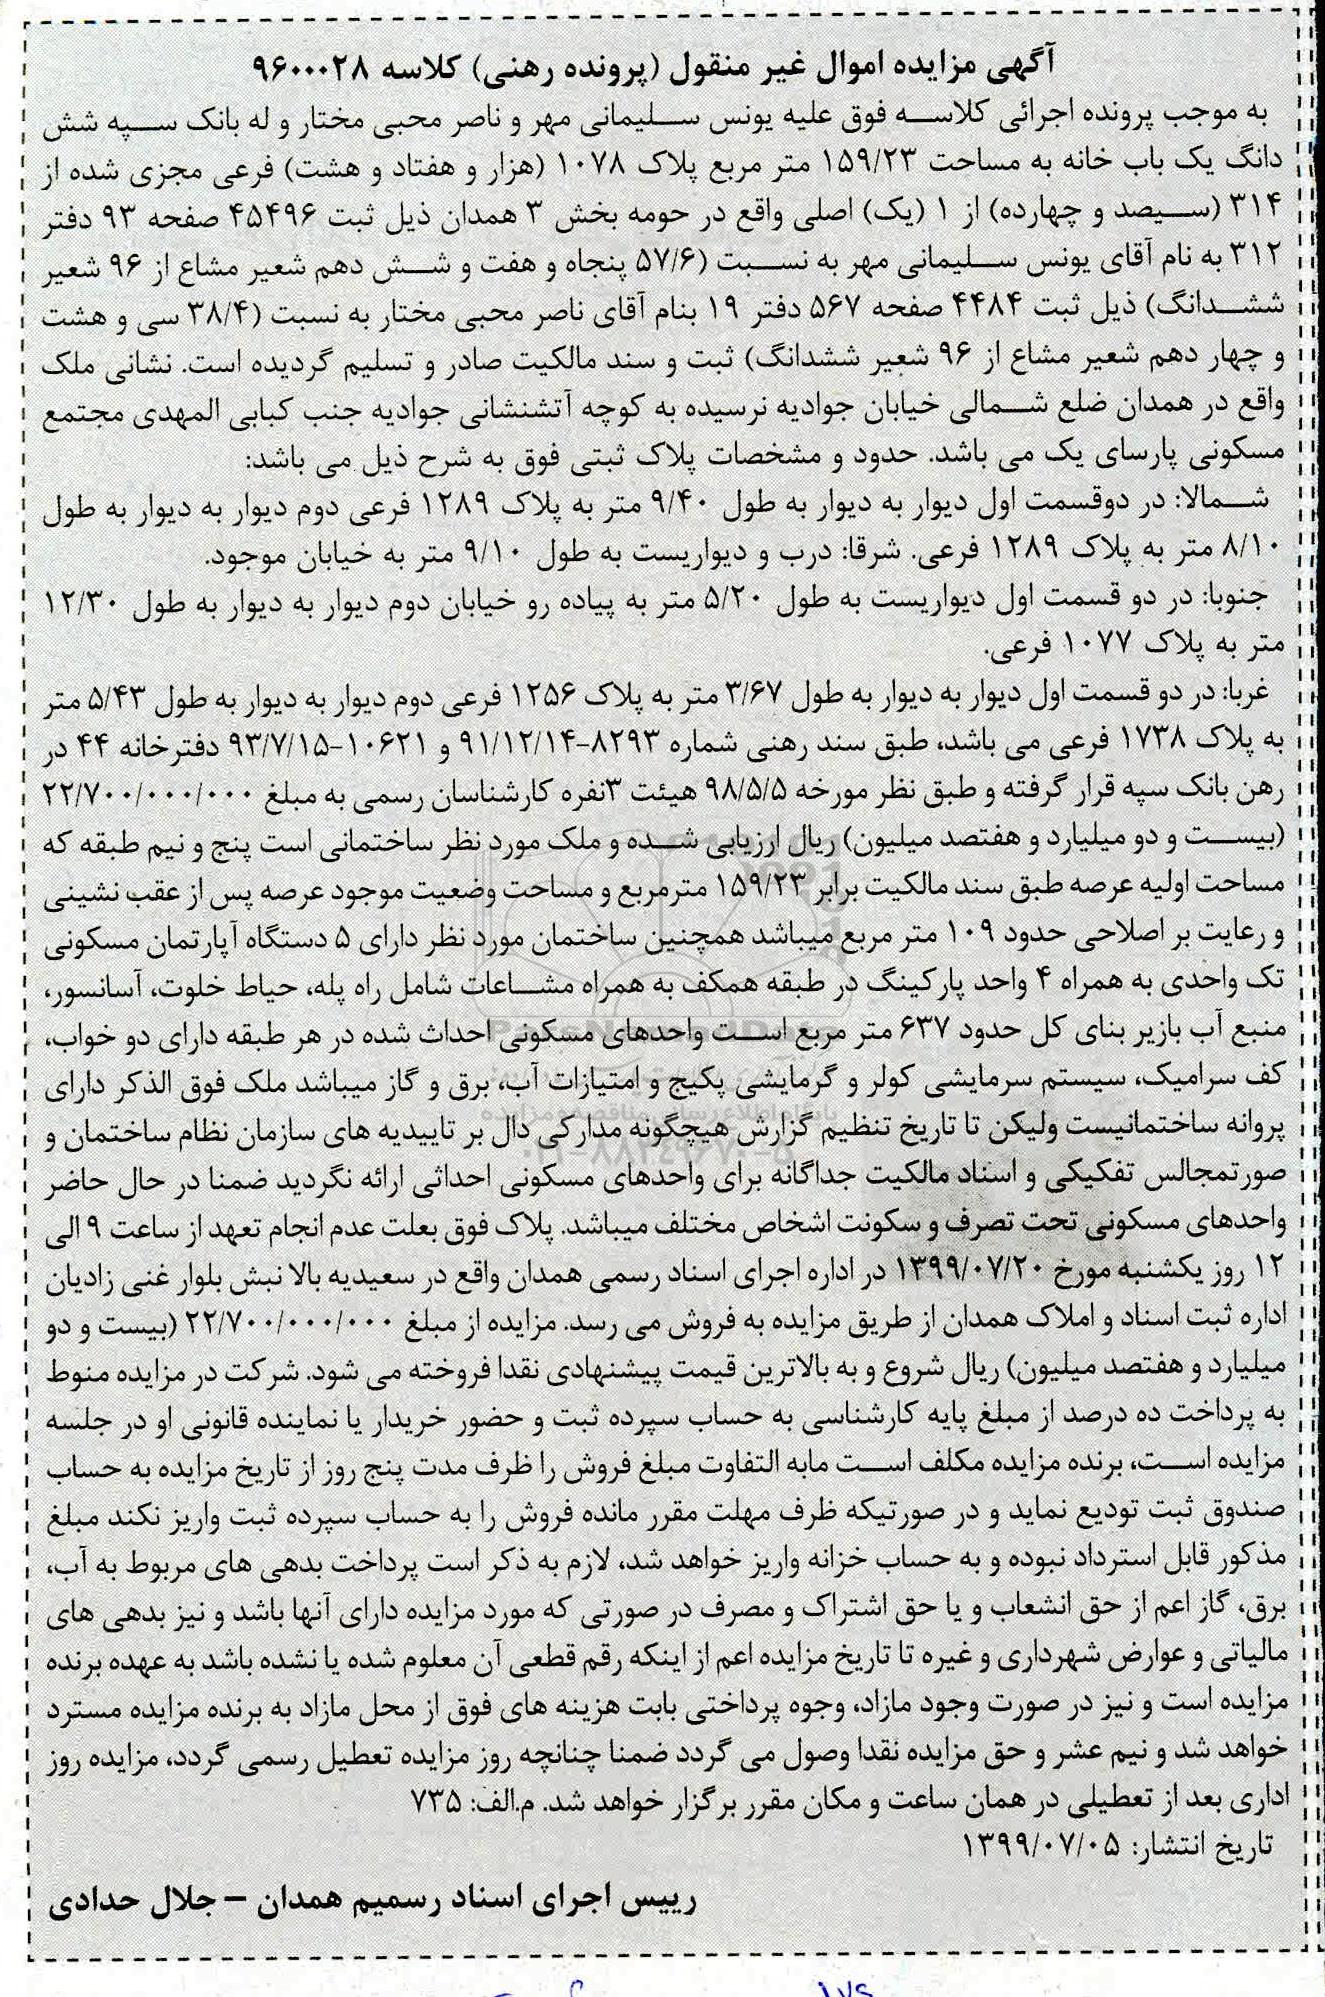 آگهی مزایده اموال غیر منقول (پرونده رهنی) کلاسه ۹۶۰۰۰۲۸
به موجب پرونده اجرائی کلاسه فوق علیه یونس سلیمانی مهر و ناصر محبی مختار و له بانک سپه شش
دانگ یک باب خانه به مساحت ۱۵۹/۲۳ متر مربع پلاک ۱۰۷۸ (هزار و هفتاد و هشت) فرعی مجزی شده از
۳۱۴ (سیصد و چهارده) از ۱ (یک) اصلی واقع در حومه بخش ۳ همدان ذیل ثبت ۴۵۴۹۶ صفحه ۹۳ دفتر
۳۱۲ به نام آقای یونس سلیمانی مهر به نسبت (۵۷/۶ پنجاه و هفت و شش دهم شعیر مشاع از ۹۶ شعیر
ششدانگ) ذیل ثبت ۴۴۸۴ صفحه ۵۶۷ دفتر ۱۹ بنام آقای ناصر محبی مختار به نسبت (۳۸/۴ سی و هشت
و چهار دهم شعیر مشاع از ۹۶ شعیر ششدانگ) ثبت و سند مالکیت صادر و تسلیم گردیده است. نشانی ملک
واقع در همدان ضلع شمالی خیابان جوادیه نرسیده به کوچه آتشنشانی جوادیه جنب کبابی المهدی مجتمع
مسکونی پارسای یک می باشد. حدود و مشخصات پلاک ثبتی فوق به شرح ذیل می باشد:
شمالا: در دوقسمت اول دیوار به دیوار به طول ۹/۴۰ متر به پلاک ۱۲۸۹ فرعی دوم دیوار به دیوار به طول
۸/۱۰ متر به پلاک ۱۲۸۹ فرعی. شرقا: درب و دیواریست به طول ۹/۱۰ متر به خیابان موجود.
جنوبا: در دو قسمت اول دیواریست به طول ۵/۲۰ متر به پیاده رو خیابان دوم دیوار به دیوار به طول ۱۲/۳۰
متر به پلاک ۱۰۷۷ فرعی.
غربا: در دو قسمت اول دیوار به دیوار به طول ۳/۶۷ متر به پلاک ۱۲۵۶ فرعی دوم دیوار به دیوار به طول ۵/۴۳ متر
به پلاک ۱۷۳۸ فرعی می باشد، طبق سند رهنی شماره ۸۲۹۳-۹۱/۱۲/۱۴ و ۱۰۶۲۱-۹۳/۷/۱۵ دفترخانه ۴۴ در
رهن بانک سپه قرار گرفته و طبق نظر مورخه ۹۸/۵/۵ هیئت ۳نفره کارشناسان رسمی به مبلغ ۲۲/۷۰۰/۰۰۰/۰۰۰
(بیست و دو میلیارد و هفتصد میلیون) ریال ارزیابی شده و ملک مورد نظر ساختمانی است پنج و نیم طبقه که
مساحت اولیه عرصه طبق سند مالکیت برابر ۱۵۹/۲۳ مترمربع و مساحت وضعیت موجود عرصه پس از عقب نشینی
و رعایت بر اصلاحی حدود ۱۰۹ متر مربع میباشد همچنین ساختمان مورد نظر دارای ۵ دستگاه آپارتمان مسکونی
تک واحدی به همراه ۴ واحد پارکینگ در طبقه همکف به همراه مشاعات شامل راه پله، حیاط خلوت، آسانسور،
منبع آب بازیر بنای کل حدود ۶۳۷ متر مربع است واحدهای مسکونی احداث شده در هر طبقه دارای دو خواب،
کف سرامیک، سیستم سرمایشی کولر و گرمایشی پکیج و امتیازات آب، برق و گاز میباشد ملک فوق الذکر دارای
پروانه ساختمانیست ولیکن تا تاریخ تنظیم گزارش هیچگونه مدارکی دال بر تاییدیه های سازمان نظام ساختمان و
صورتمجالس تفکیکی و اسناد مالکیت جداگانه برای واحدهای مسکونی احداثی ارائه نگردید ضمنا در حال حاضر
واحدهای مسکونی تحت تصرف و سکونت اشخاص مختلف میباشد. پلاک فوق بعلت عدم انجام تعهد از ساعت ۹ الی
۱۲ روز یکشنبه مورخ ۱۳۹۹/۰۷/۲۰ در اداره اجرای اسناد رسمی همدان واقع در سعیدیه بالا نبش بلوار غنی زادیان
اداره ثبت اسناد و املاک همدان از طریق مزایده به فروش می رسد. مزایده از مبلغ ۲۲/۷۰۰/۰۰۰/۰۰۰ (بیست و دو
میلیارد و هفتصد میلیون) ریال شروع و به بالاترین قیمت پیشنهادی نقدا فروخته می شود. شرکت در مزایده منوط
به پرداخت ده درصد از مبلغ پایه کارشناسی به حساب سپرده ثبت و حضور خریدار یا نماینده قانونی او در جلسه
مزایده است، برنده مزایده مکلف است مابه التفاوت مبلغ فروش را ظرف مدت پنج روز از تاریخ مزایده به حساب
صندوق ثبت تودیع نماید و در صورتیکه ظرف مهلت مقرر مانده فروش را به حساب سپرده ثبت واریز نکند مبلغ
مذکور قابل استرداد نبوده و به حساب خزانه واریز خواهد شد، لازم به ذکر است پرداخت بدهی های مربوط به آب،
برق، گاز اعم از حق انشعاب و یا حق اشتراک و مصرف در صورتی که مورد مزایده دارای آنها باشد و نیز بدهی های
مالیاتی و عوارض شهرداری و غیره تا تاریخ مزایده اعم از اینکه رقم قطعی آن معلوم شده یا نشده باشد به عهده برنده
مزایده است و نیز در صورت وجود مازاد، وجوه پرداختی بابت هزینه های فوق از محل مازاد به برنده مزایده مسترد
خواهد شد و نیم عشر و حق مزایده نقدا وصول می گردد ضمنا چنانچه روز مزایده تعطیل رسمی گردد، مزایده روز
اداری بعد از تعطیلی در همان ساعت و مکان مقرر برگزار خواهد شد. م.الف: ۷۳۵
تاریخ انتشار: ۱۳۹۹/۰۷/۰۵
رییس اجرای اسناد رسمیم همدان – جلال حدادی